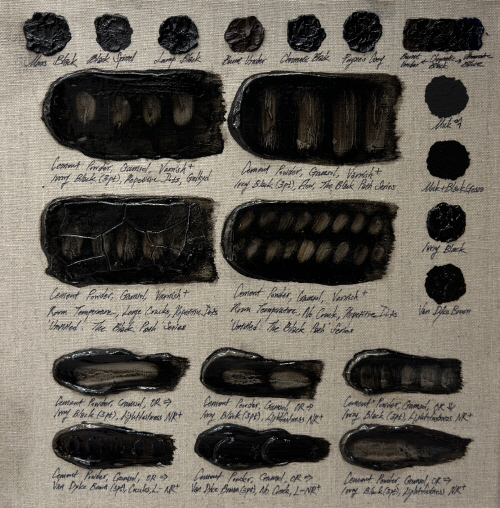 Mars Black
Black Spinel
Lamp Black
Burnt Umber
Chromatic Black
Payne's Grey
Burnt
Mix #1
Cement Powder, Gamsol, Varnish +
Ivory Black (3pt), Repetitive Dots,
Cement Powder, Gamsol, Varnish +
Ivory Black (3pt), The Black Path Series
Ivory Black
Van Dyke Brown
Cement Powder, Gamsol, Varnish +
Room Temperature, Large Cracks, Repetitive Dots
'Untitled' The Black Path Series
Cement Powder, Gamsol, Varnish +
Room Temperature, No Cracks, Repetitive Dots
'Untitled' The Black Path Series
Cement Powder, Gamsol, OR ⇒
Ivory Black (3pt), Lightfastness NR+
Cement Powder, Gamsol, OR ⇒
Ivory Black (3pt), Lightfastness NR+
Cement Powder, Gamsol, OR
Ivory Black (3pt), Lightfastness NR+
Cement Powder, Gamsol, OR ⇒
Van Dyke Brown (3pt), Circles, L-NR+
Cement Powder, Gamsol, OR ⇒
Van Dyke Brown (3pt), No Cracks, L-NR+
Cement Powder, Gamsol, OR ⇒
Ivory Black (3pt), Lightfastness NR+